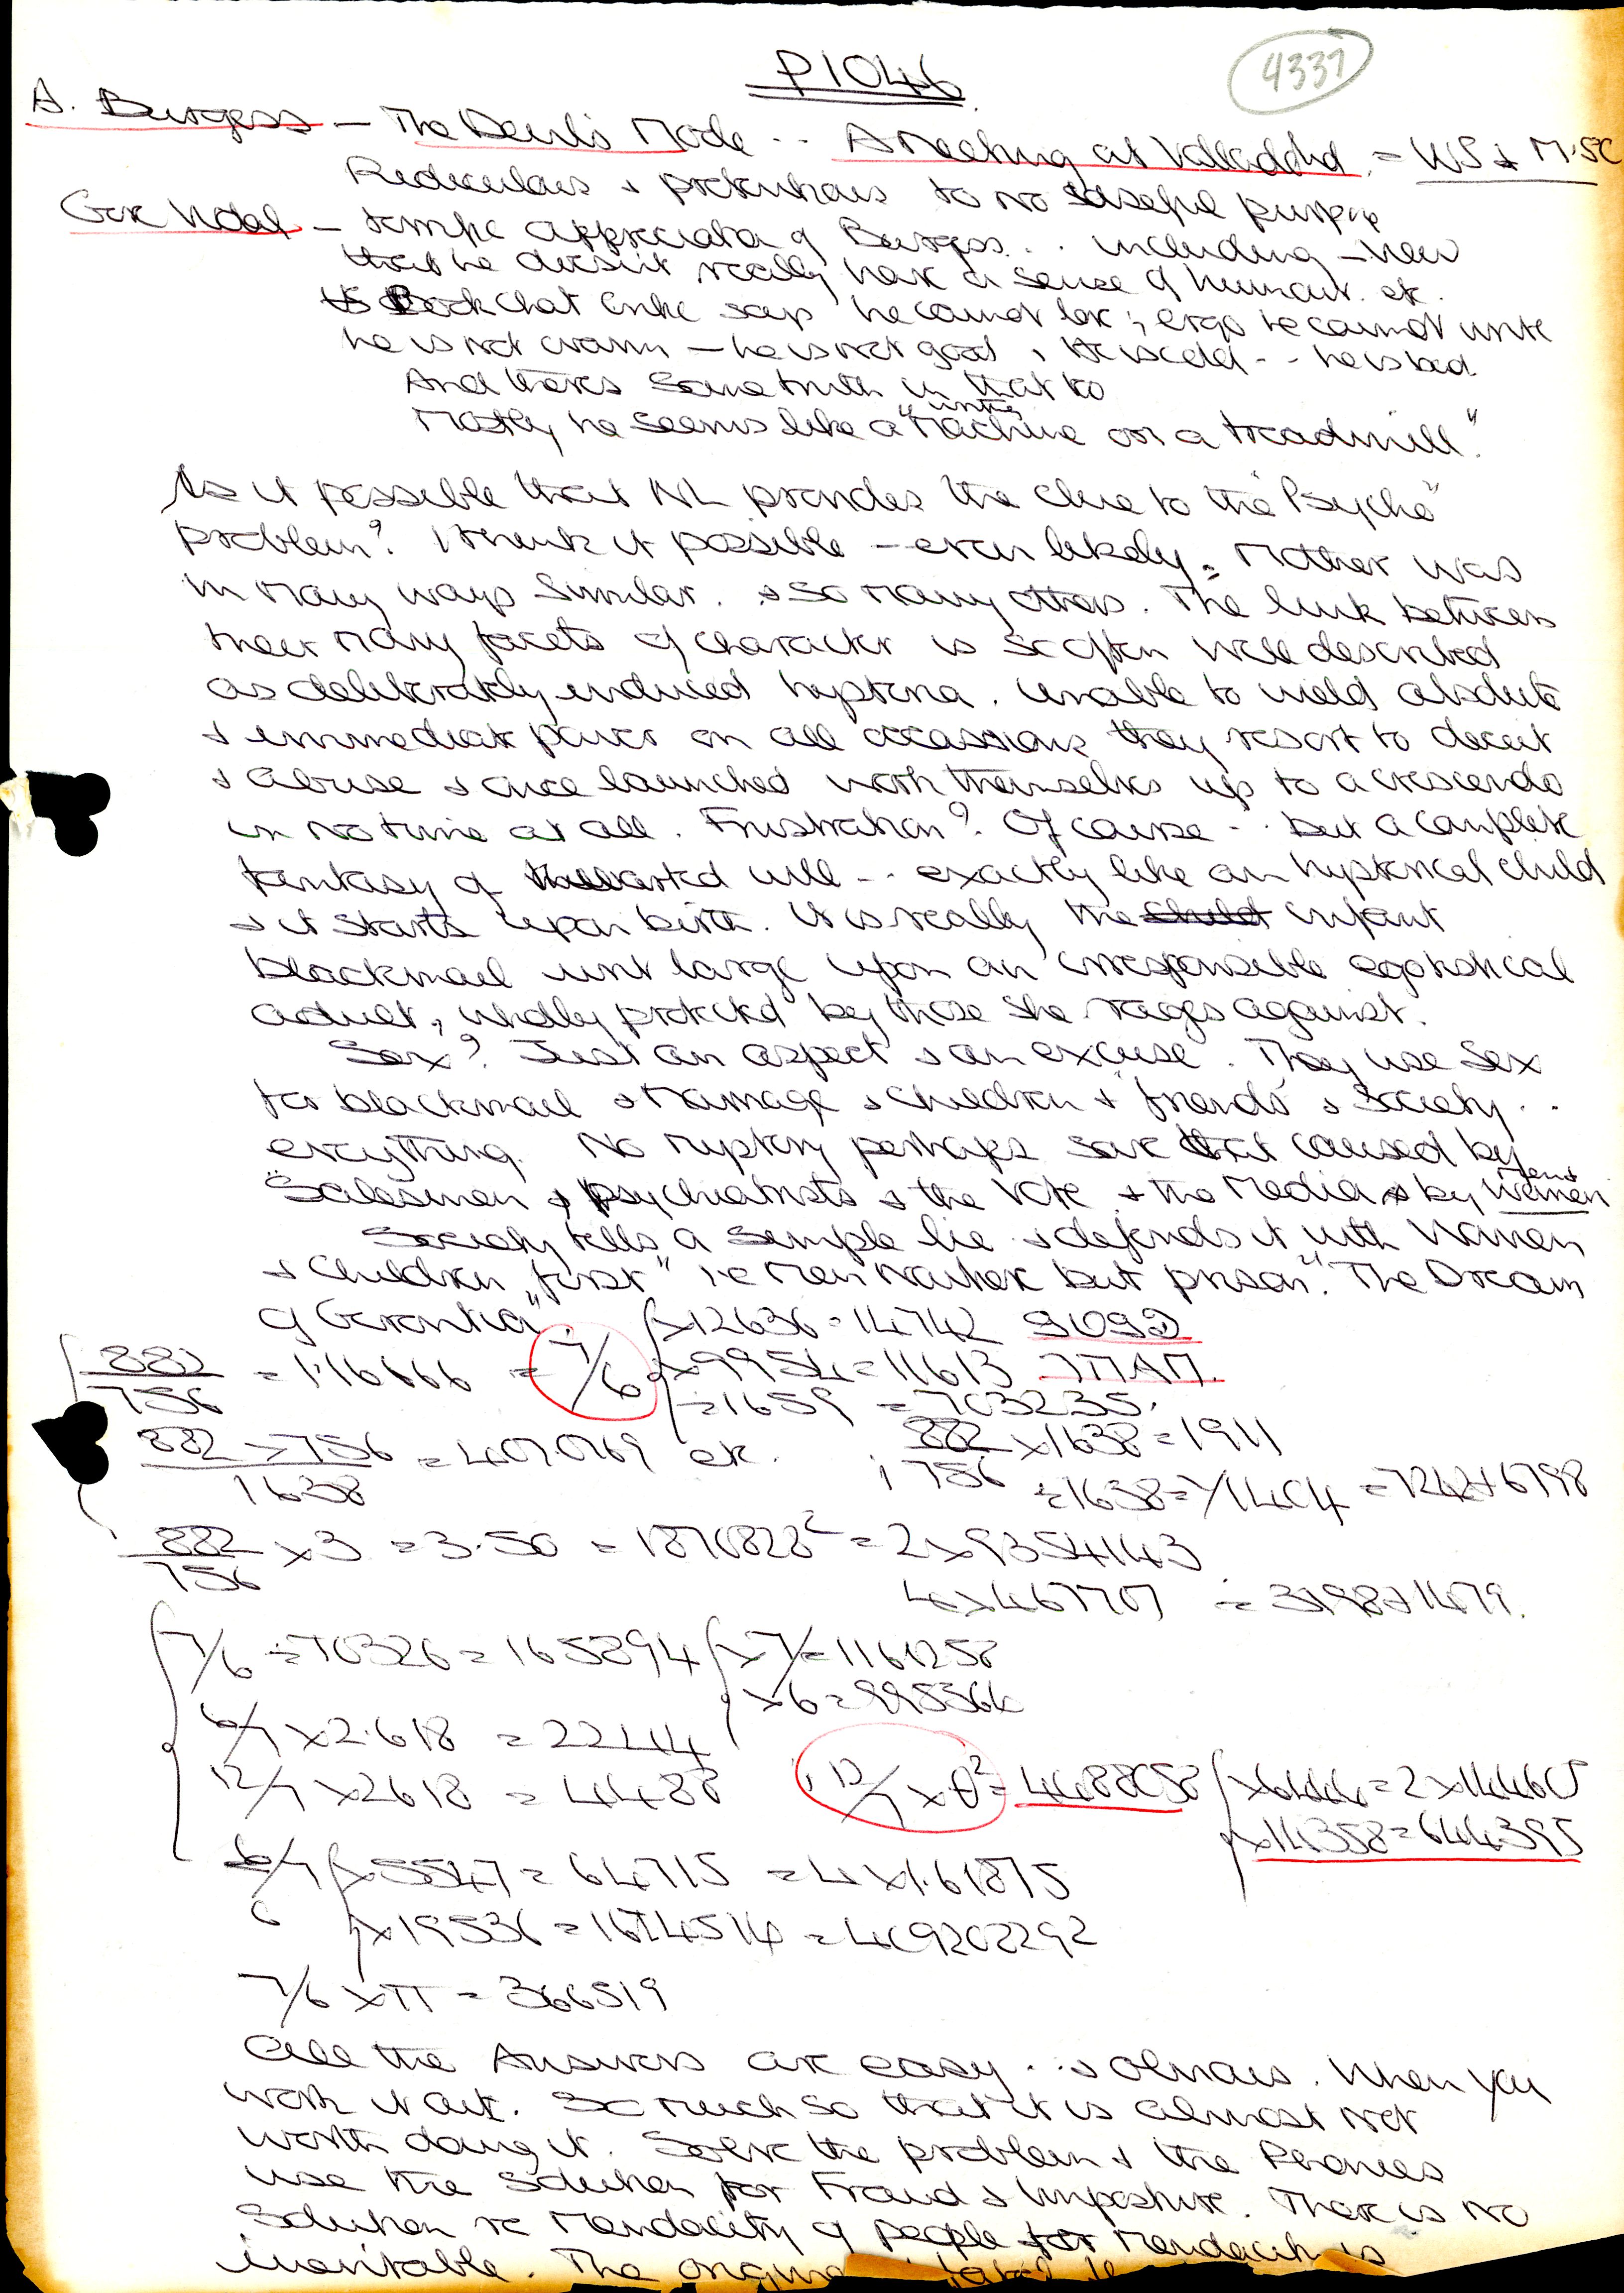 P1046
4337
A. Burgess - The Devil's Mode .. A Meeting at Valladolid = WS & M.SC
Rediculous & pretentious to no useful purpose
Gore Vidal - terrific appreciation of Burgess .. including - how
that he doesn't really have a sense of humour. etc.
Bookchat Critic says he cannot love; ergo he cannot write
he is not warm - he is not good, He is cold .. he is bad
And there's some truth in that too
writing
Mostly he seems like a "Machine on a treadmill".
Is it possible that NL provides the clue to the "Psyche"
problem? I think it possible - even likely. Mother was
in many ways similar. & so many others. The link between
their many facets of character is so often well described
as deliberately induced hysteria. Unable to wield absolute
& immediate power on all occassions they resort to deceit
& abuse & once launched work themselves up to a crescendo
in no time at all. Frustration? Of course .. but a complete
fantasy of thwarted will .. exactly like an hysterical child
& it starts upon birth. It is really the child infant
blackmail writ large upon an irresponsible egotistical
adult, wholly protected by those she rages against.
Sex? Just an aspect & an excuse. They use Sex
for blackmail & Marriage & children & "friends" & Society ..
everything. No mystery perhaps save that caused by
Salesmen & psychiatrists & the Vote & the Media & by Women
Society tells a simple lie & defends it with Women
& Children "first" i.e Men nowhere but prison. "The Dream
of Gerontion".
x12636 = 14742 9092
882/756 = 1.16666 = 7/6 x9954 = 11613
÷1659 = 703235.
882 x 756/1638 = 407.0769 etc. ; 882/756 x1638 = 1911
÷1638 = 1/1404 = 7242+6798
882/756 x3 = 3.50 = 1870828² = 2x9354143
4x467707 ÷ 3198+1479.
7/6 ÷70326 = 165894 x7 = 1161258
x6 = 995364
6/7 x2.618 = 22444
12/7 x2618 = 4488 12/7 xθ² = 4488058 x6444 = 2x14460
x14358 = 644395
6/7 x5547 = 64715 = 4x1.61875
6 x19536 = 1674514 = 409202292
7/6 xπ = 366519
All the Answers are easy .. & obvious. When you
work it out. So much so that it is almost not
worth doing it. Solve the problem & the Phonies
use the solution for Fraud & Imposture. There is no
Solution re Mendacity of people for Mendacity is
inevitable. The